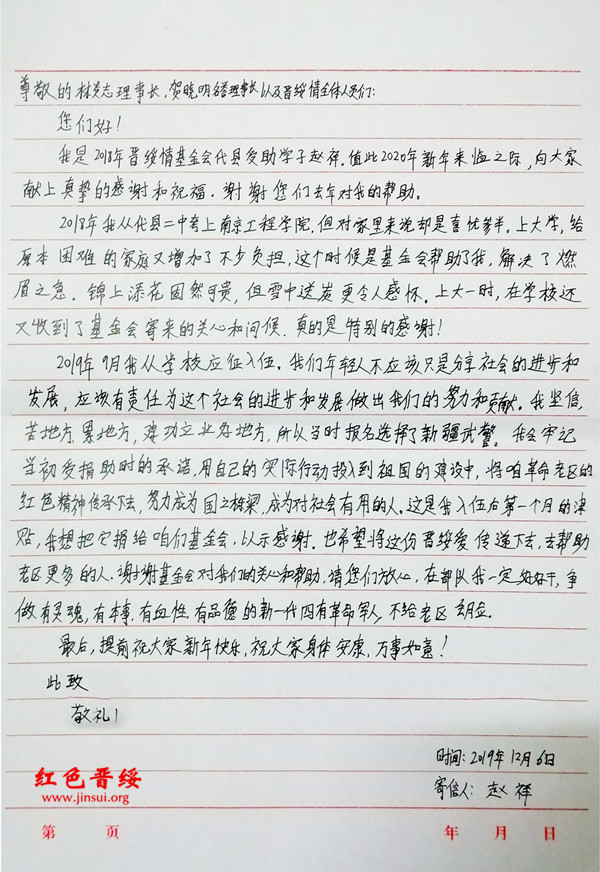 尊敬的林炎志理事长、贺晓明名誉理事长以及晋绥情全体人员们：
您们好！
我是2018年晋绥情基金会代县受助学子赵祥。值此2020年新年来临之际，向大家
献上真挚的感谢和祝福。谢谢您们去年对我的帮助。
2018年我从代县二中考上南京工程学院。但对家里来说却是喜忧参半。上大学，给
原本困难的家庭又增加了不少负担，这个时候是基金会帮助了我，解决了燃
眉之急。锦上添花固然可贵，但雪中送炭更令人感怀。上大一时，在学校还
又收到了基金会寄来的关心和问候，真的是特别的感谢！
2019年9月我从学校应征入伍。我们年轻人不应该只是分享社会的进步和
发展，应该有责任为这个社会的进步和发展做出我们的努力和贡献。我坚信，
苦地方、累地方，建功立业好地方，所以当时报名选择了新疆武警。我会牢记
当初受捐助时的承诺，用自己的实际行动投入到祖国的建设中，将咱革命老区的
红色精神传承下去，努力成为国之栋梁，成为对社会有用的人。这是我入伍后第一个月的津
贴，我想把它捐给咱们基金会，以示感谢。也希望将这份晋绥爱传递下去，去帮助
老区更多的人。谢谢基金会对我们的关心和帮助，请您们放心，在部队我一定好好干，争
做有灵魂，有本事，有血性，有品德的新一代四有革命军人，不给老区丢
最后，提前祝大家新年快乐，祝大家身体安康，万事如意！
此致
敬礼！
时间：2019年12月6日
寄信人：赵祥
红色晋绥
www.jinsui.org
第 页 年 月 日